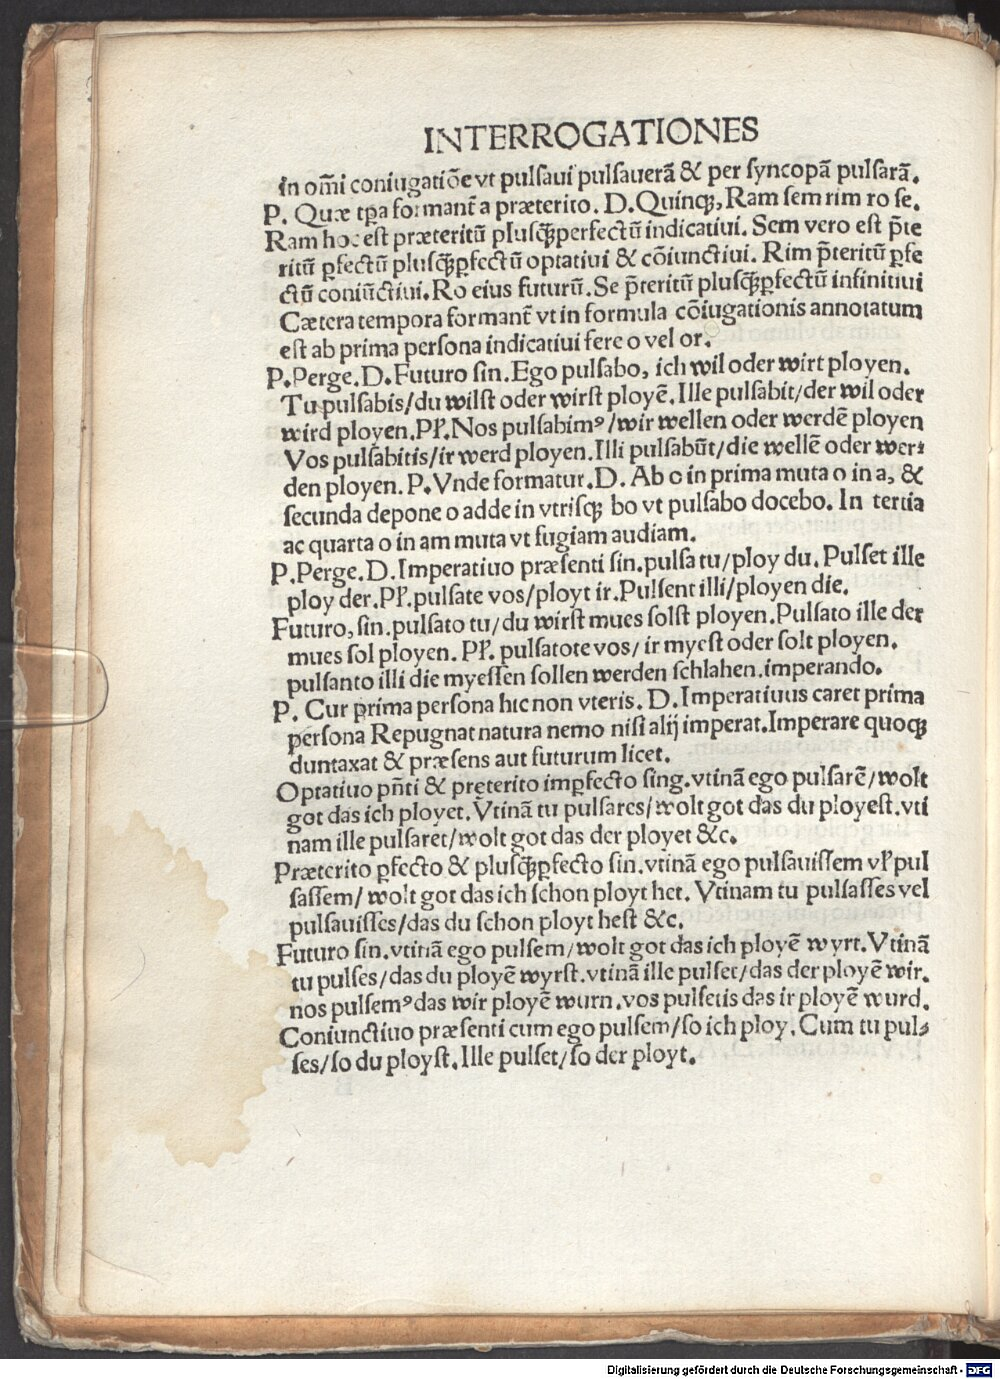 INTERROGATIONES
in om̃i coniugatiõe vt pulsaui pulsauerã & per syncopã pulsarã.
P. Quæ tp̃a formant̃ a præterito. D. Quinqꝫ, Ram sem rim ro se.
Ram hoc est præteritũ plusqꝫ̃perfectũ indicatiui. Sem vero est p̃te
ritũ ꝑfectũ plusqꝫ̃ꝑfectũ optatiui & cõiunctiui. Rim p̃teritũ ꝑfe
ctũ coniũctiui. Ro eius futurũ. Se p̃teritũ plusqꝫ̃ꝑfectũ infinitiui
Cætera tempora formant̃ vt in formula cõiugationis annotatum
est ab prima persona indicatiui fere o vel or.
P. Perge. D. Futuro sin. Ego pulsabo, ich wil oder wirt ployen.
Tu pulsabis/du wilst oder wirst ployẽ. Ille pulsabit/der wil oder
wird ployen. Pl̃. Nos pulsabimꝰ/wir wellen oder werdẽ ployen
Vos pulsabitis/ir werd ployen. Illi pulsabũt/die wellẽ oder wer⸗
den ployen. P. Vnde formatur. D. Ab o in prima muta o in a, &
secunda depone o adde in vtrisqꝫ bo vt pulsabo docebo. In tertia
ac quarta o in am muta vt fugiam audiam.
P. Perge. D. Imperatiuo præsenti sin. pulsa tu/ploy du. Pulset ille
ploy der. Pl̃. pulsate vos/ployt ir. Pulsent illi/ployen die.
Futuro, sin. pulsato tu/du wirst mues solst ployen. Pulsato ille der
mues sol ployen. Pl̃. pulsatote vos/ir myest oder solt ployen.
pulsanto illi die myessen sollen werden schlahen. imperando.
P. Cur prima persona hic non vteris. D. Imperatiuus caret prima
persona Repugnat natura nemo nisi alij imperat. Imperare quoqꝫ
duntaxat & præsens aut futurum licet.
Optatiuo pñti & preterito imꝑfecto sing. vtinã ego pulsarẽ/wolt
got das ich ployet. Vtinã tu pulsares/wolt got das du ployest. vti
nam ille pulsaret/wolt got das der ployet &c.
Præterito ꝑfecto & plusqꝫ̃ꝑfecto sin. vtinã ego pulsauissem vl̃ pul
sassem/wolt got das ich schon ployt het. Vtinam tu pulsasses vel
pulsauisses/das du schon ployt hest &c.
Futuro sin. vtinã ego pulsem/wolt got das ich ployẽ wyrt. Vtinã
tu pulses/das du ployẽ wyrst. vtinã ille pulset/das der ployẽ wir.
nos pulsemꝰ das wir ployẽ wurn. vos pulsetis das ir ployẽ wurd.
Coniunctiuo præsenti cum ego pulsem/so ich ploy. Cum tu pul⸗
ses/so du ployst. Ille pulset/so der ployt.
Digitalisierung gefördert durch die Deutsche Forschungsgemeinschaft - DFG